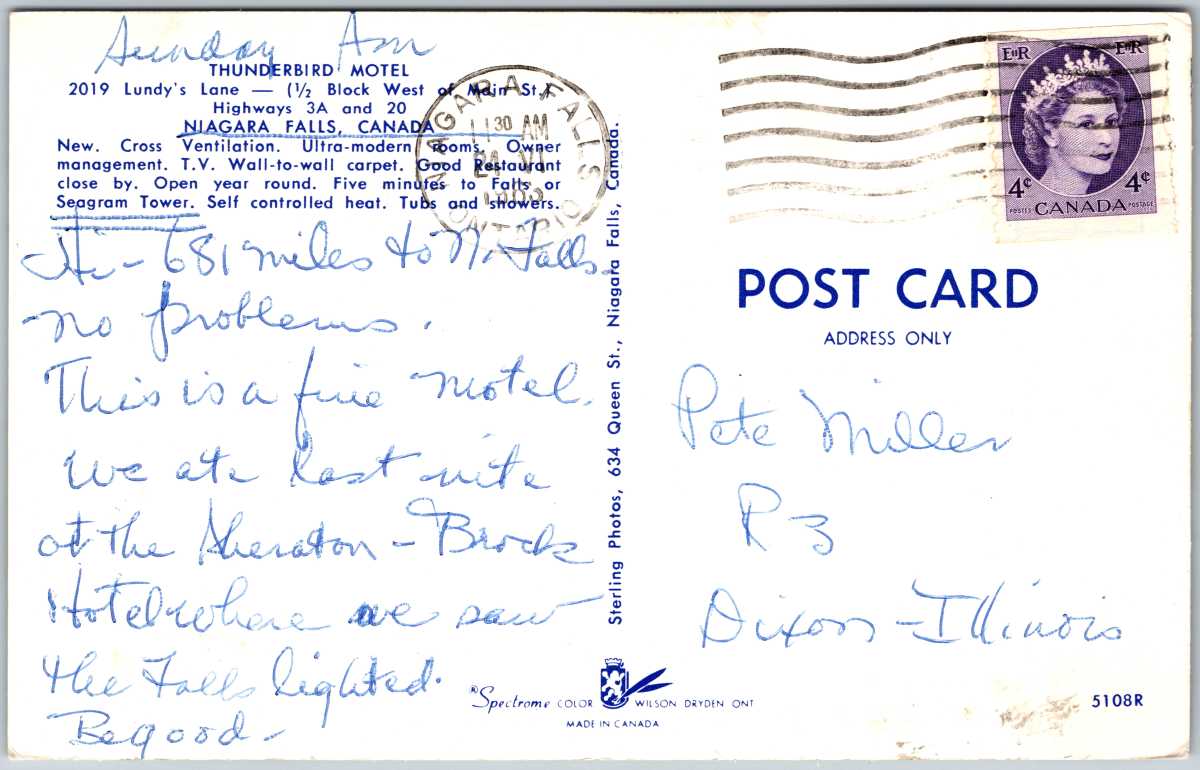 Sunday Am
THUNDERBIRD MOTEL
2019 Lundy's Lane — (½ Block West of Main St.)
Highways 3A and 20
NIAGARA FALLS, CANADA
New. Cross Ventilation. Ultra-modern rooms. Owner
management. T.V. Wall-to-wall carpet. Good Restaurant
close by. Open year round. Five minutes to Falls or
Seagram Tower. Self controlled heat. Tubs and showers.
Hi - 681 miles to N. Falls -
no problems.
This is a fine motel.
We ate last nite
at the Sheraton - Brock
Hotel where we saw
the Falls lighted.
Be good -
NIAGARA FALLS
11 30 AM
VI
ONTARIO
Sterling Photos, 634 Queen St., Niagara Falls, Canada.
EIIR EIIR
4¢ 4¢
POSTES CANADA POSTAGE
POST CARD
ADDRESS ONLY
Pete Miller
R 3
Dixon - Illinois
Spectrome COLOR WILSON DRYDEN ONT
MADE IN CANADA
5108R